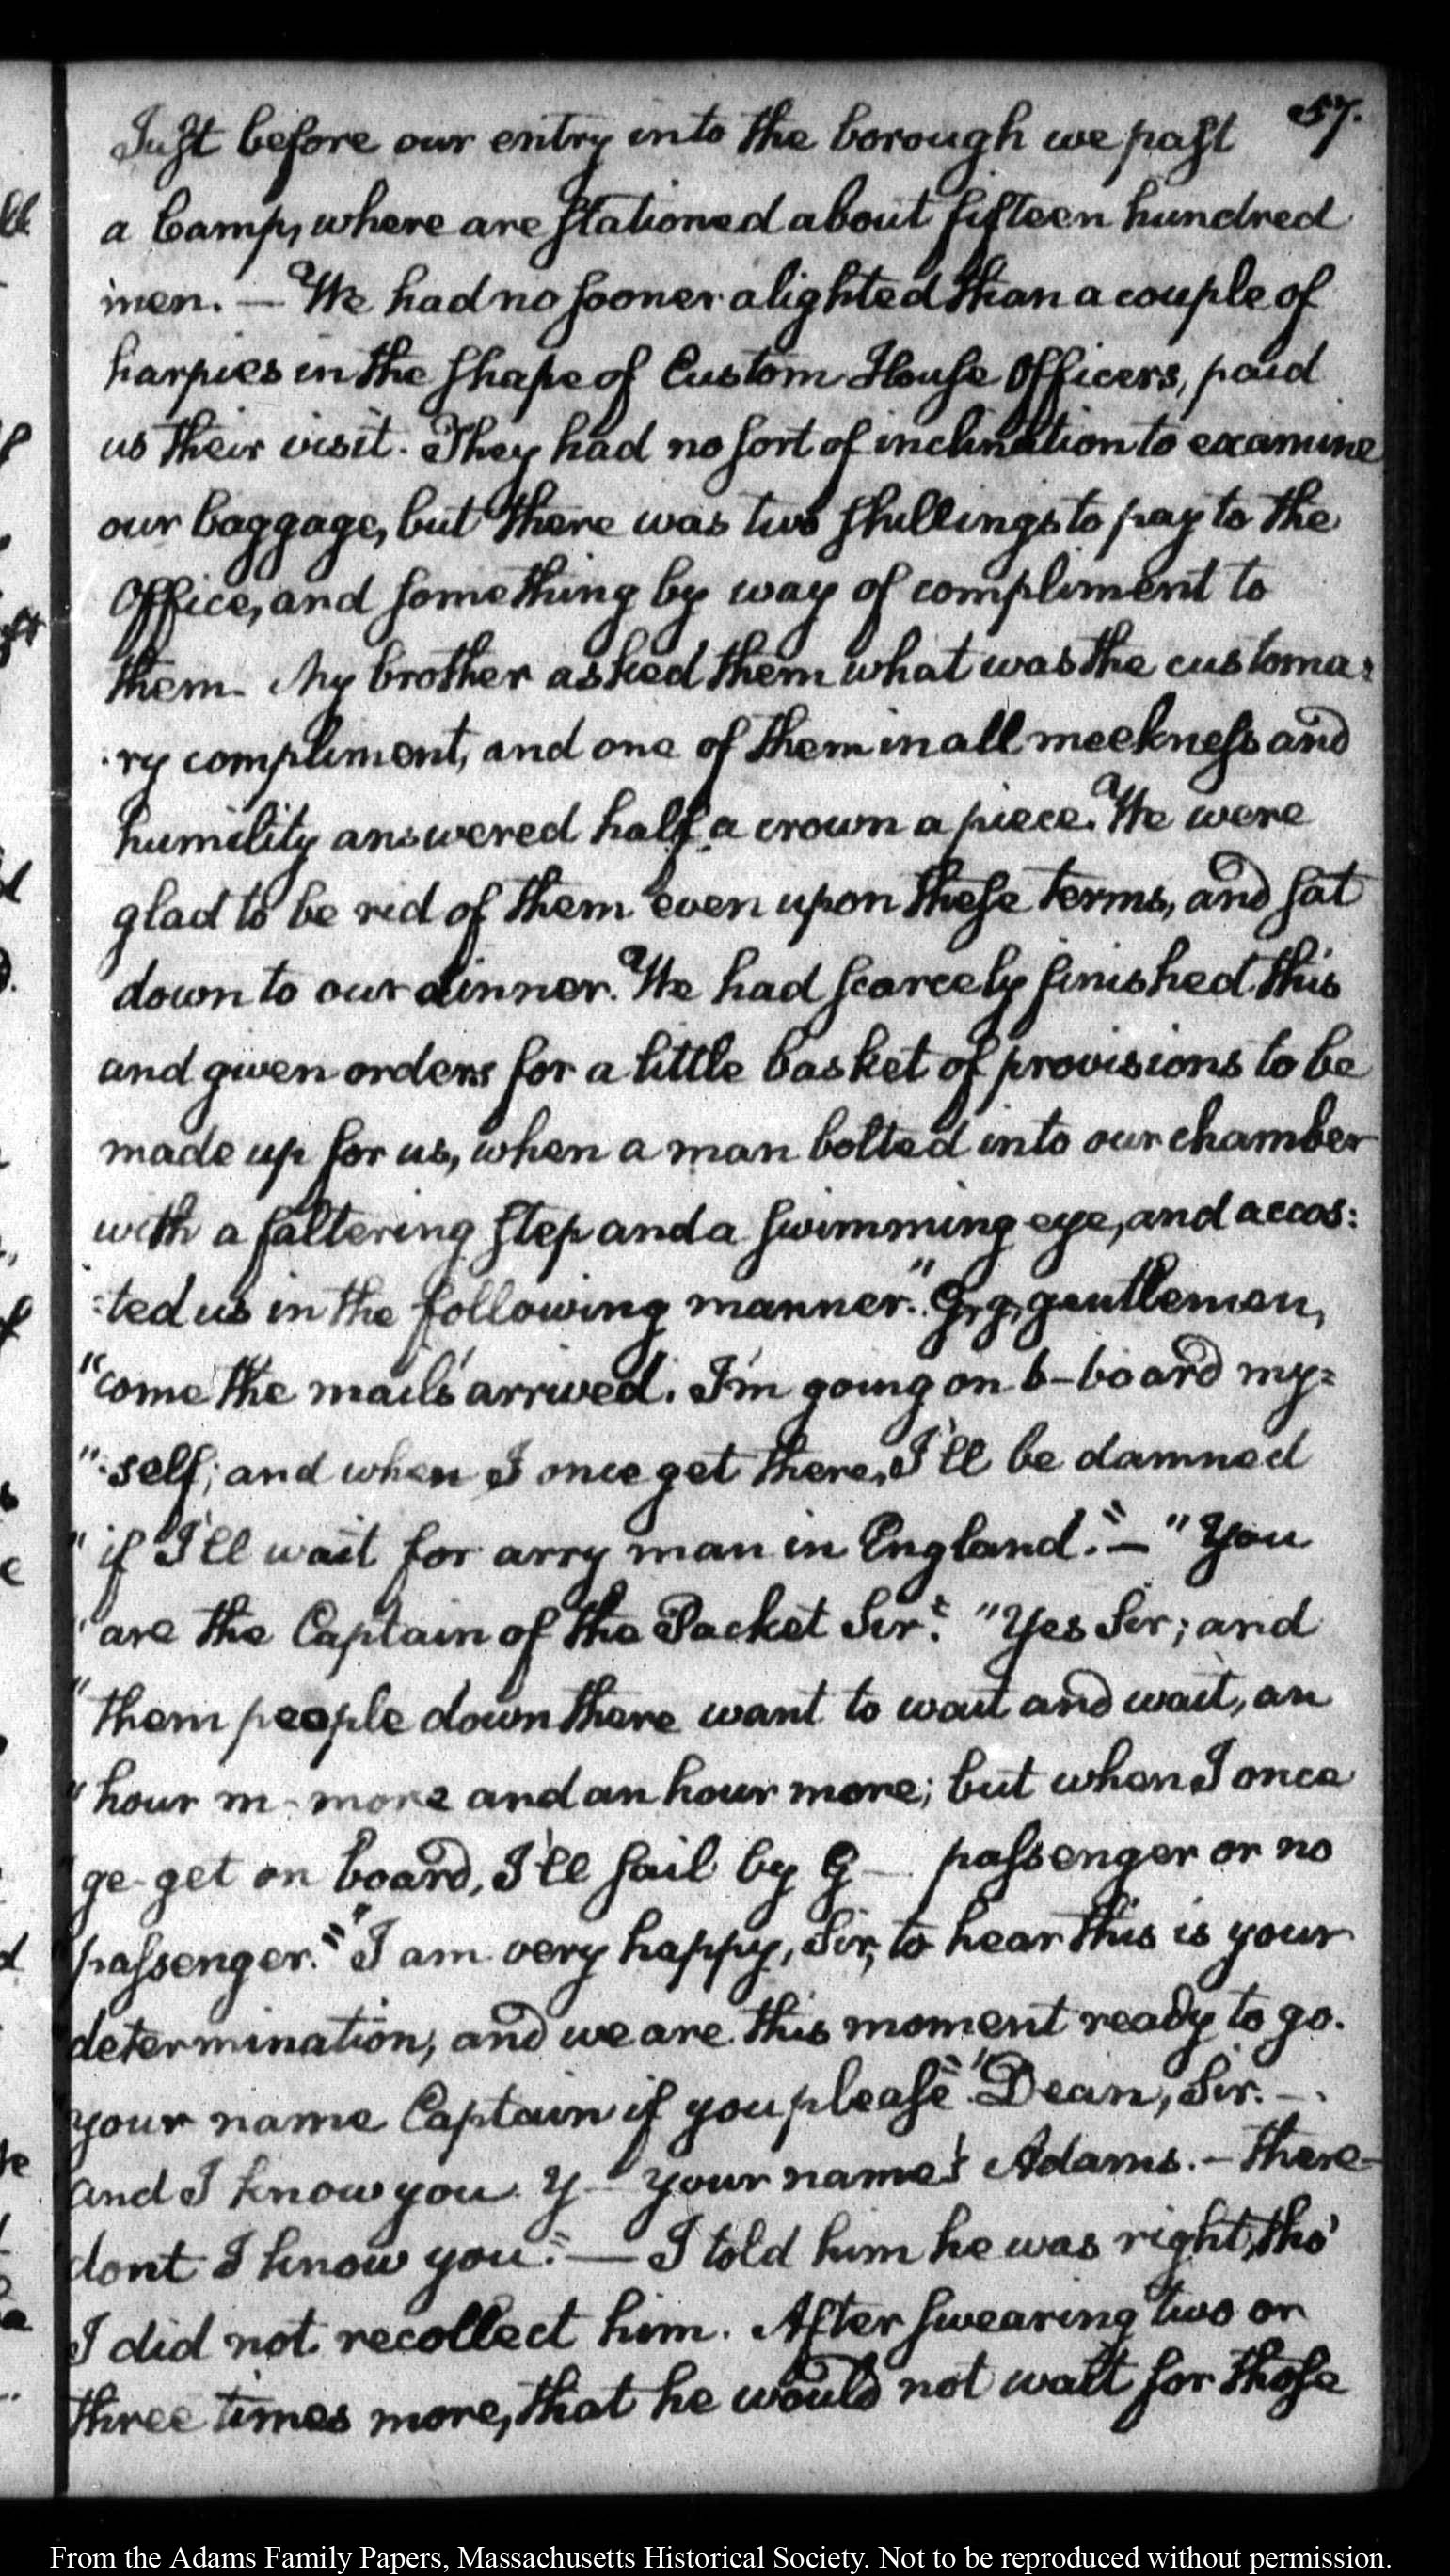 57.
Just before our entry into the borough we past
a Camp, where are stationed about fifteen hundred
men. — We had no sooner alighted than a couple of
harpies in the shape of Custom House Officers, paid
us their visit. They had no sort of inclination to examine
our baggage, but there was two shillings to pay to the
Office, and something by way of compliment to
them. My brother asked them what was the customa:
:ry compliment, and one of them in all meekness and
humility answered half a crown a piece. We were
glad to be rid of them even upon these terms, and sat
down to our dinner. We had scarcely finished this
and given orders for a little basket of provisions to be
made up for us, when a man bolted into our chamber
with a faltering step and a swimming eye, and accos:
:ted us in the following manner. "G, g, gentlemen,
"come the mail's arrived. I'm going on b-board my=
":self; and when I once get there, I'll be damned
"if I'll wait for arry man in England." — "You
"are the Captain of the Packet Sir." "Yes Sir; and
"them people down there want to wait and wait, an
"hour m-more and an hour more; but when I once
"ge-get on board, I'll sail by G— passenger or no
passenger." "I am very happy, Sir, to hear this is your
determination, and we are this moment ready to go.
your name Captain if you please" "Dean, Sir. —
and I know you. Y— your name's Adams. — there—
dont I know you." — I told him he was right, tho'
I did not recollect him. After swearing two or
three times more, that he would not wait for those
From the Adams Family Papers, Massachusetts Historical Society. Not to be reproduced without permission.